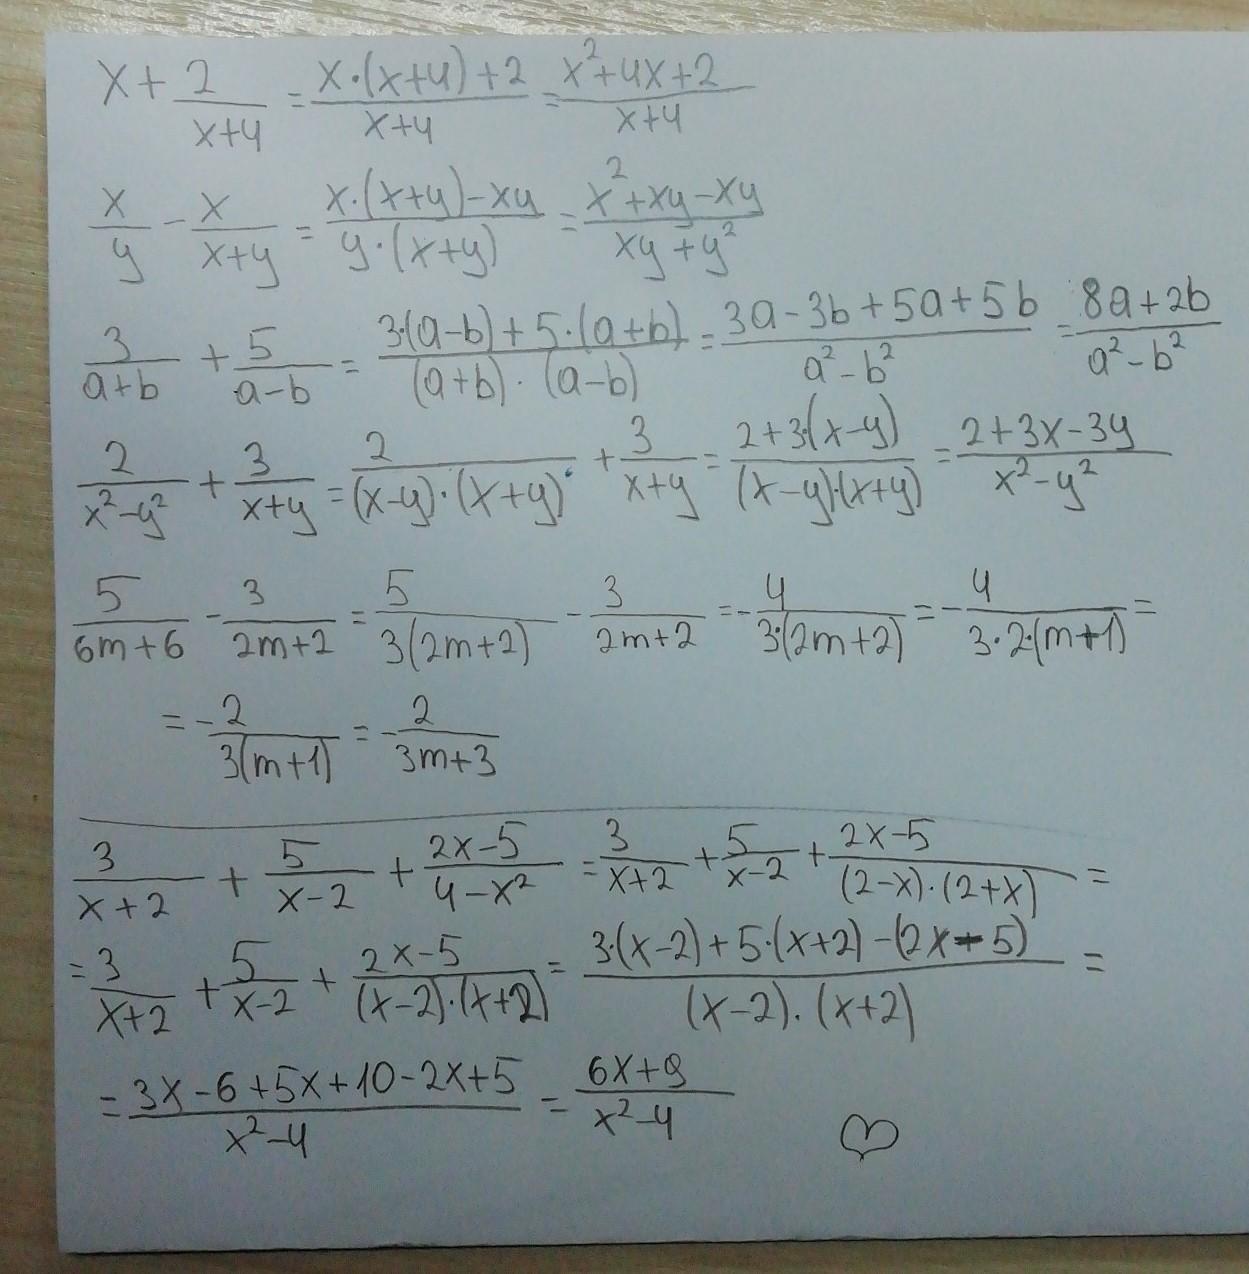 x + 2/(x+4) = (x·(x+4)+2)/(x+4) = (x²+4x+2)/(x+4)
x/y - x/(x+y) = (x·(x+y)-xy)/(y·(x+y)) = (x²+xy-xy)/(xy+y²)
3/(a+b) + 5/(a-b) = (3·(a-b)+5·(a+b))/((a+b)·(a-b)) = (3a-3b+5a+5b)/(a²-b²) = (8a+2b)/(a²-b²)
2/(x²-y²) + 3/(x+y) = 2/((x-y)·(x+y)) + 3/(x+y) = (2+3·(x-y))/((x-y)·(x+y)) = (2+3x-3y)/(x²-y²)
5/(6m+6) - 3/(2m+2) = 5/(3(2m+2)) - 3/(2m+2) = -4/(3·(2m+2)) = -4/(3·2·(m+1)) =
= -2/(3(m+1)) = -2/(3m+3)
3/(x+2) + 5/(x-2) + (2x-5)/(4-x²) = 3/(x+2) + 5/(x-2) + (2x-5)/((2-x)·(2+x)) =
= 3/(x+2) + 5/(x-2) + (2x-5)/((x-2)·(x+2)) = (3·(x-2)+5·(x+2)-(2x-5))/((x-2)·(x+2)) =
= (3x-6+5x+10-2x+5)/(x²-4) = (6x+9)/(x²-4)